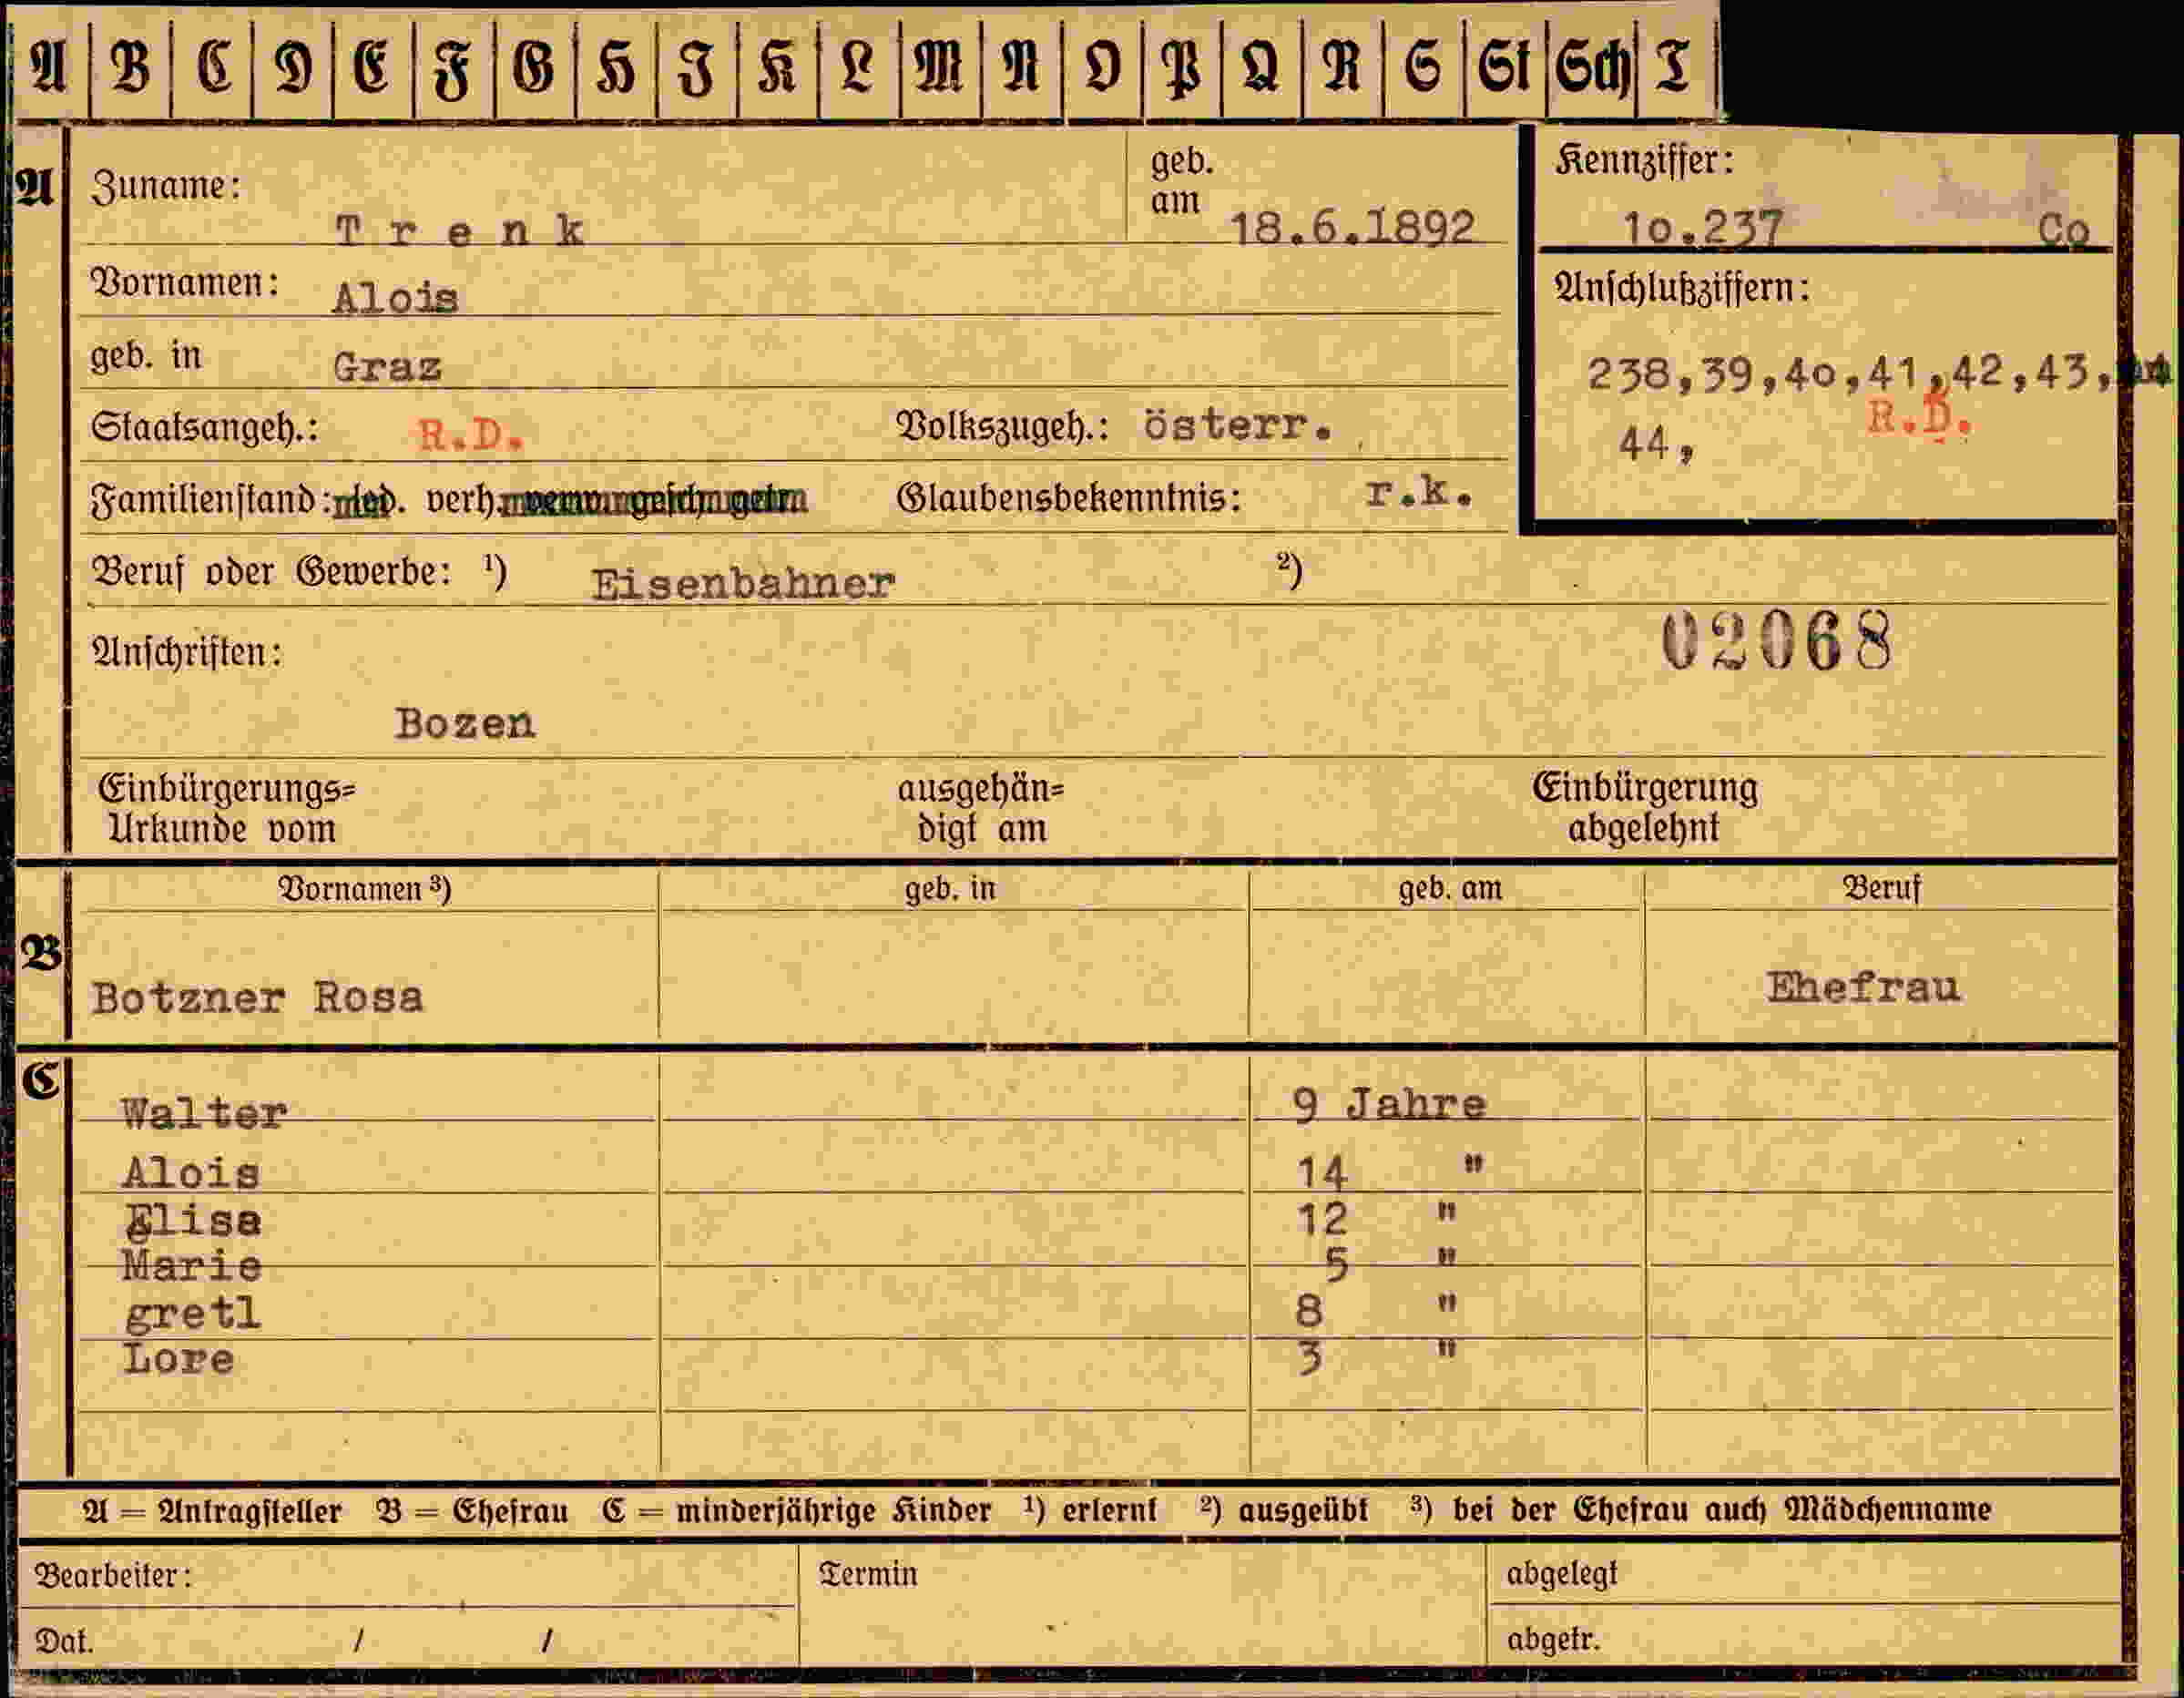 A B C D E F G H I K L M N O P Q R S St Sch T
A Zuname: Trenk geb. am 18.6.1892 Kennziffer: 10.237 Co
Vornamen: Alois Anschlußziffern:
geb. in Graz 238,39,40,41,42,43,
Staatsangeh.: R.D. Volkszugeh.: österr. 44, R.D.
Familienstand: verh. Glaubensbekenntnis: r.k.
Beruf oder Gewerbe: ¹) Eisenbahner ²)
Anschriften: 02068
Bozen
Einbürgerungs= ausgehän= Einbürgerung
Urkunde vom digt am abgelehnt
Vornamen ³) geb. in geb. am Beruf
B Botzner Rosa Ehefrau
C Walter 9 Jahre
Alois 14 "
Elisa 12 "
Marie 5 "
gretl 8 "
Lore 3 "
A = Antragsteller B = Ehefrau C = minderjährige Kinder ¹) erlernt ²) ausgeübt ³) bei der Ehefrau auch Mädchenname
Bearbeiter: Termin abgelegt
Dat. / / abgetr.